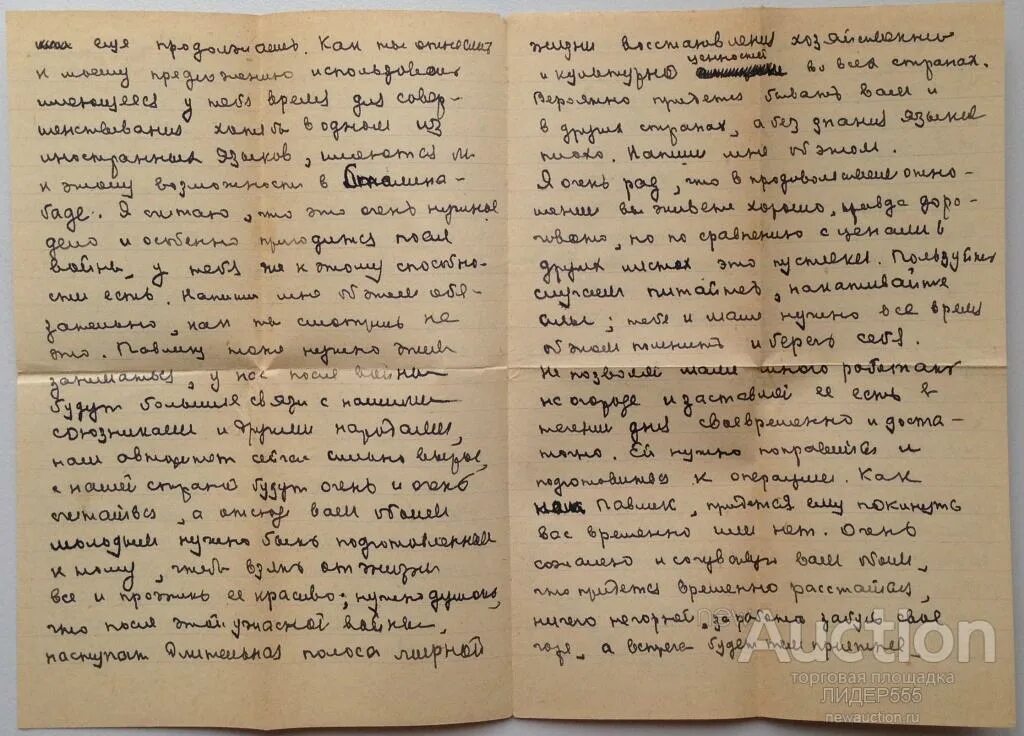 еще продолжаешь. Как ты отнеслась
к моему предложению использовать
имеющееся у тебя время для совер-
шенствования хотя бы в одном из
иностранных языков, имеются ли
к этому возможности в Сталина-
баде. Я считаю, что это очень нужное
дело и особенно пригодится после
войны, у тебя же к этому способно-
сти есть. Напиши мне об этом обя-
зательно, как ты смотришь на
это. Павлику тоже нужно этим
заниматься, у нас после войны
будут большие связи с нашими
союзниками и другими народами,
наш авторитет сейчас сильно вырос,
с нашей страной будут очень и очень
считаться, а отсюда вам обоим
молодым нужно быть подготовленным
к тому, чтобы взять от жизни
все и прожить ее красиво; нужно думать,
что после этой ужасной войны
наступит длительная полоса мирной
жизни восстановления хозяйственных
и культурно ценностей во всех странах.
Вероятно придется бывать вам и
в других странах, а без знания языков
плохо. Напиши мне об этом.
Я очень рад, что в продовольственном отно-
шении вы живете хорошо, правда доро-
говато, но по сравнению с ценами в
других местах это пустяки. Пользуйтесь
случаем питайтесь, накапливайте
силы; тебе и маме нужно все время
об этом помнить и беречь себя.
Не позволяй маме много работать
на огороде и заставляй ее есть в
течении дня своевременно и доста-
точно. Ей нужно поправиться и
подготовиться к операции. Как
Павлик, придется ему покинуть
вас временно или нет. Очень
сожалею и сочувствую вам обоим,
что придется временно расстаться,
ничего не горюй, за работой забудь свое
горе, а встреча будет тем приятнее.
newAuction
торговая площадка
ЛИДЕР555
newauction.ru